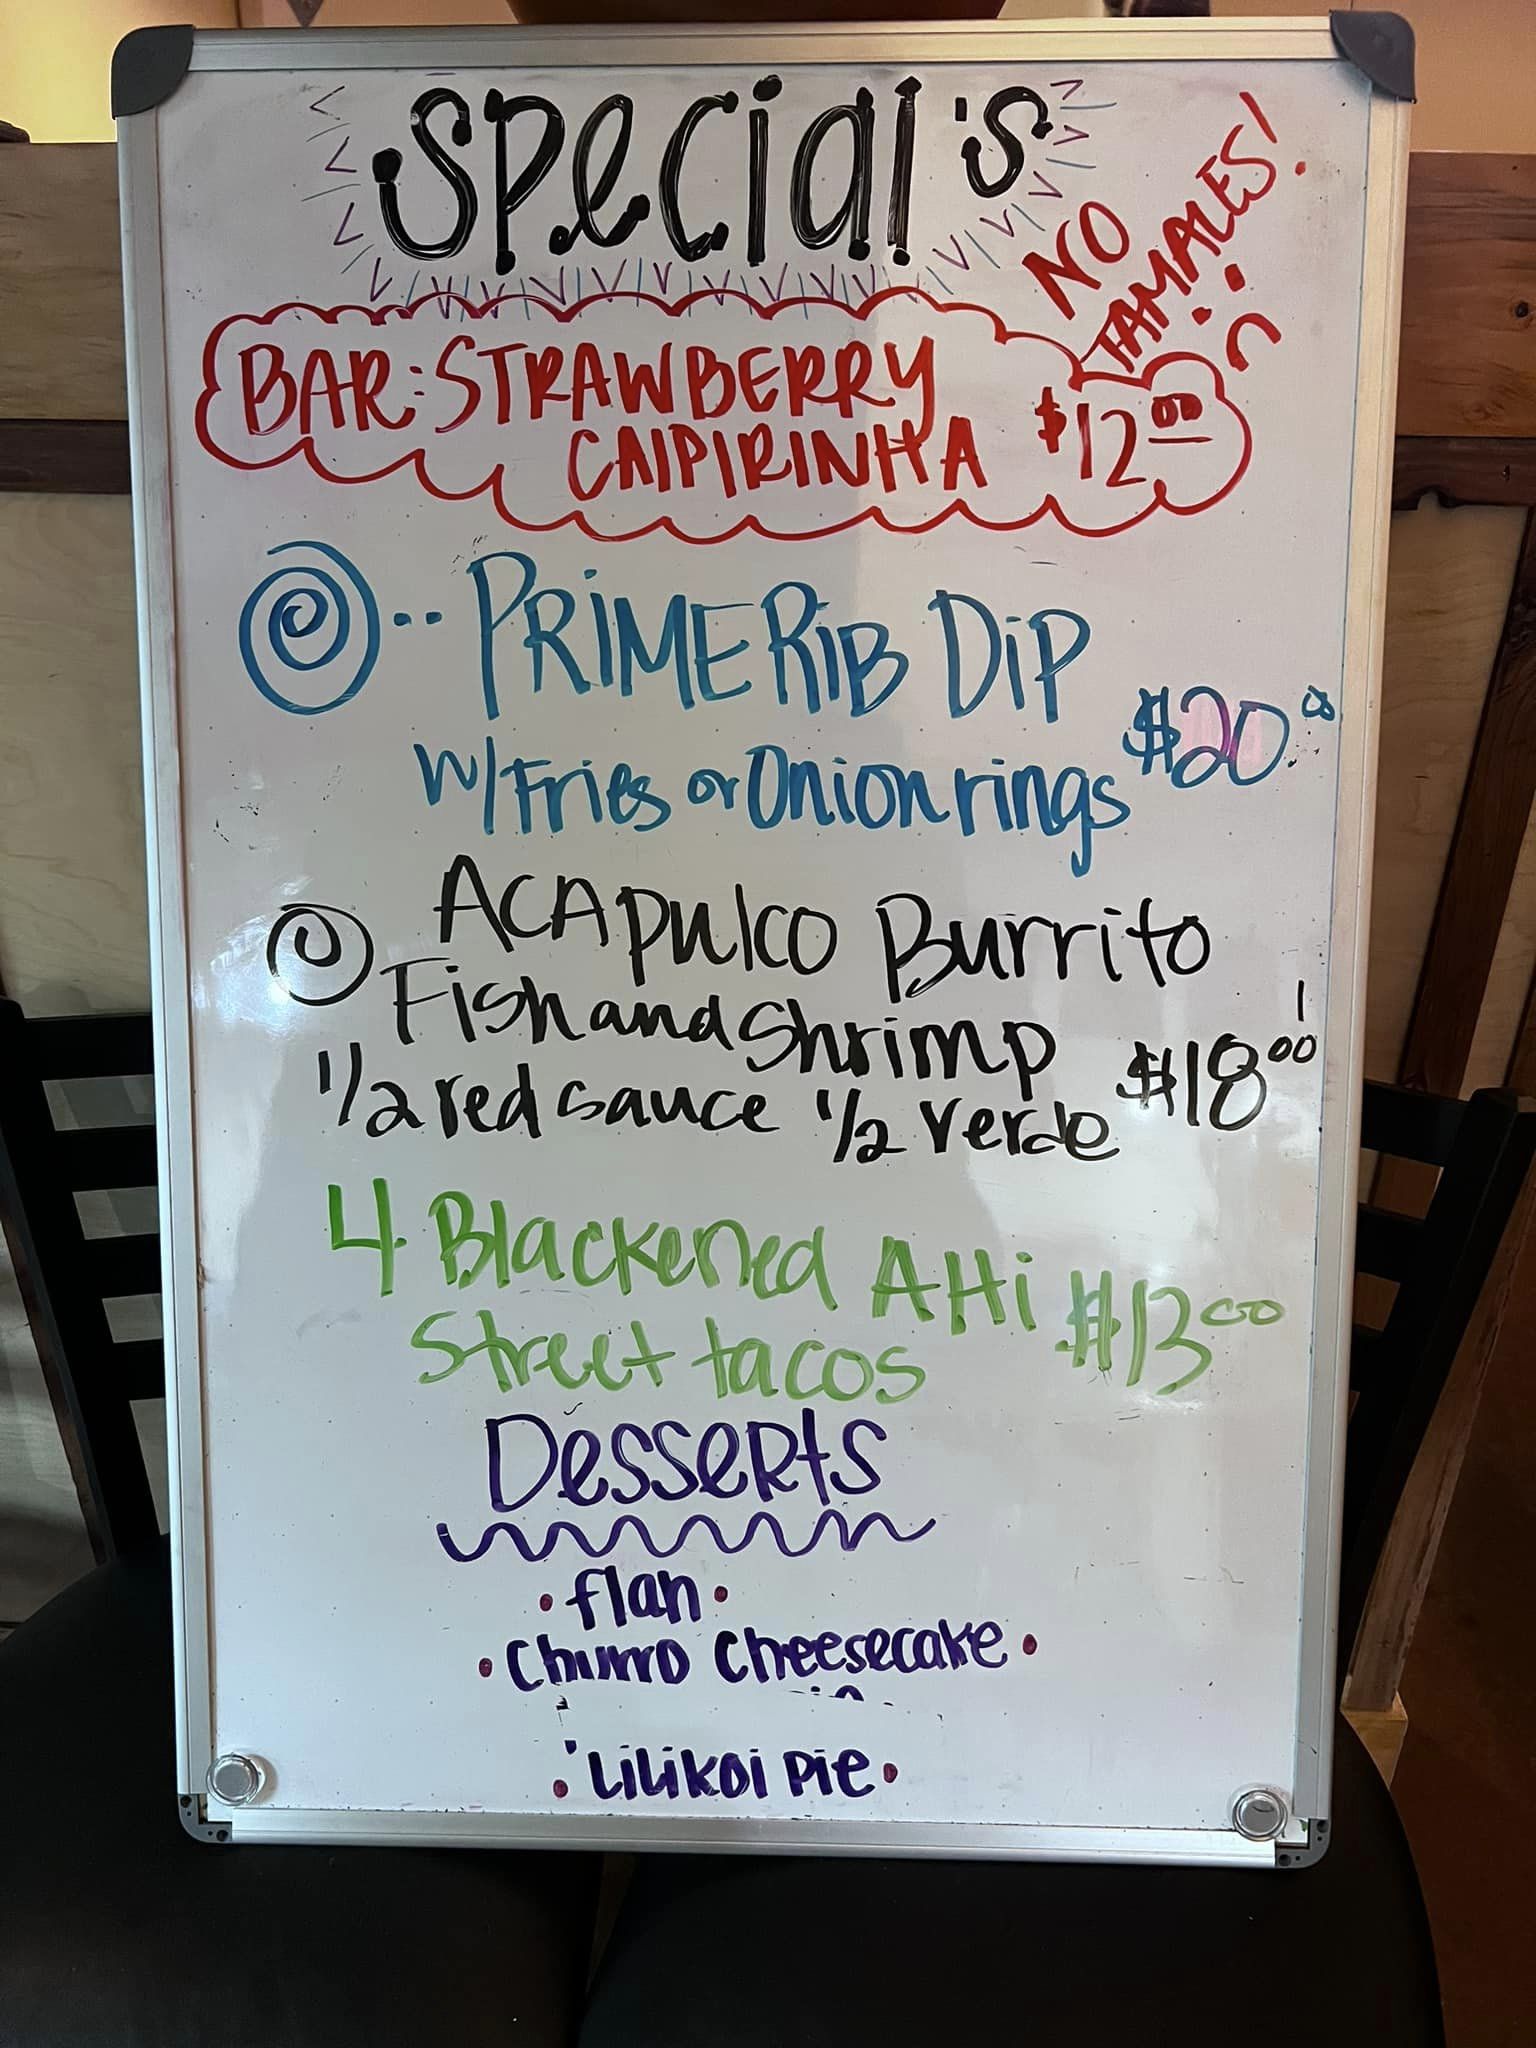 Special's
NO
TAMALES!
BAR: STRAWBERRY
CAIPIRINHA $12.00
PRIME RIB DIP
w/ Fries or Onion rings $20.00
ACApulco Burrito
Fish and Shrimp
1/2 red sauce 1/2 verde $18.00
4 Blackened AHi
Street tacos $13.00
Desserts
• flan •
• Churro Cheesecake •
• Lilikoi pie •